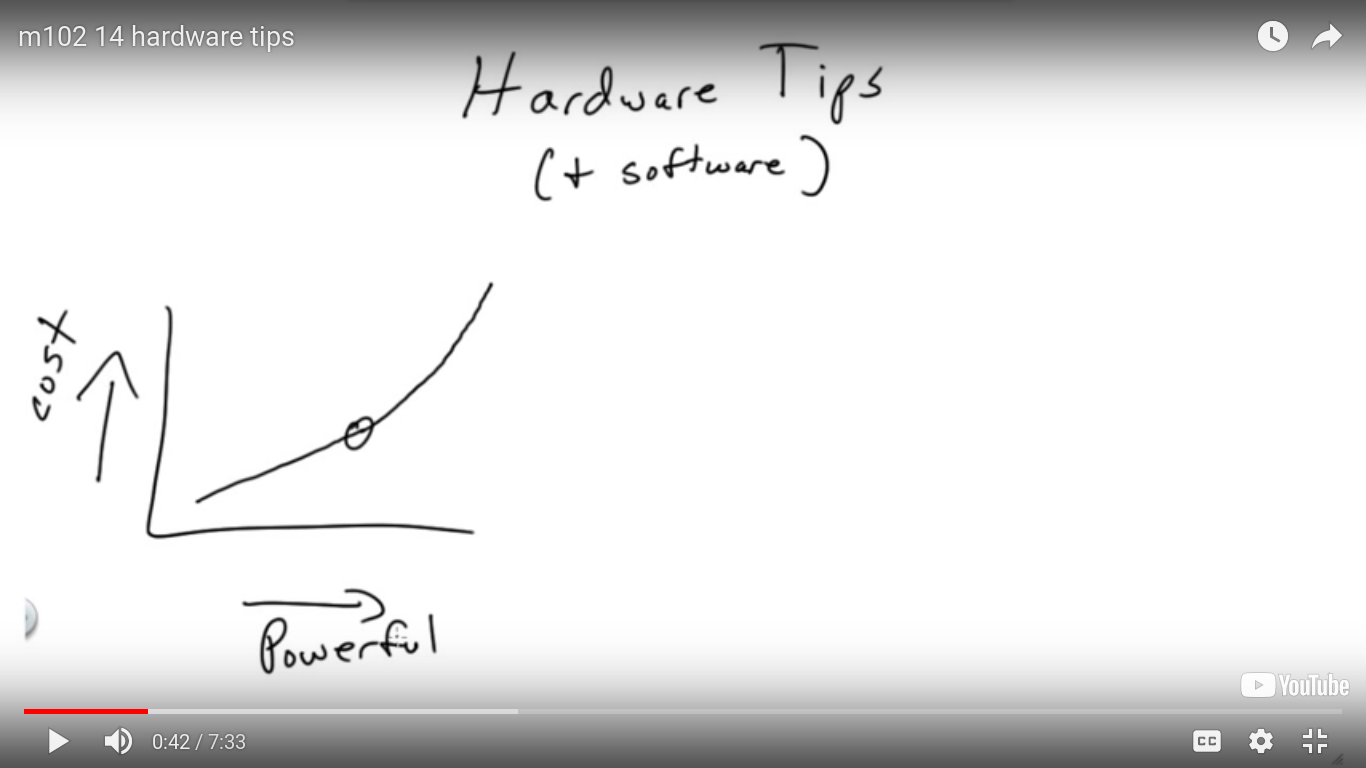 m102 14 hardware tips
Hardware Tips
(+ software)
cost
Powerful
YouTube
0:42 / 7:33
CC